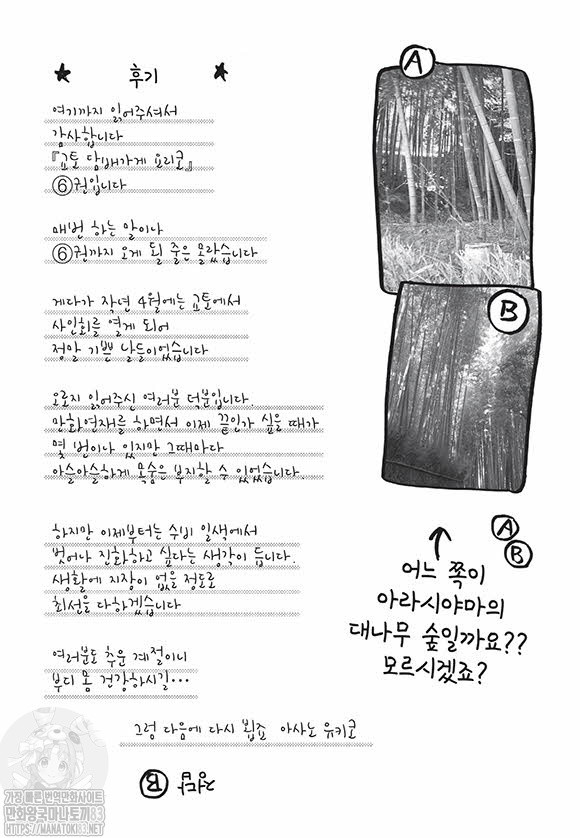 ★ 후기 ★
여기까지 읽어주셔서
감사합니다
『교토 담배가게 요리코』
⑥권입니다
매번 하는 말이나
⑥권까지 오게 될 줄은 몰랐습니다
게다가 작년 4월에는 교토에서
사인회를 열게 되어
정말 기쁜 날들이었습니다
오로지 읽어주신 여러분 덕분입니다.
만화연재를 하면서 이제 끝인가 싶을 때가
몇 번이나 있지만 그때마다
아슬아슬하게 목숨은 부지할 수 있었습니다.
하지만 이제부터는 수비 일색에서
벗어나 진화하고 싶다는 생각이 듭니다.
생활에 지장이 없을 정도로
최선을 다하겠습니다
여러분도 추운 계절이니
부디 몸 건강하시길···
그럼 다음에 다시 뵙죠 아사노 유키코
정답 Ⓑ
Ⓐ
Ⓑ
Ⓐ
Ⓑ
↑
어느 쪽이
아라시야마의
대나무 숲일까요??
모르시겠죠?
가장 빠른 번역만화사이트
만화왕국마나토끼83
HTTPS://MANATOKI83.NET